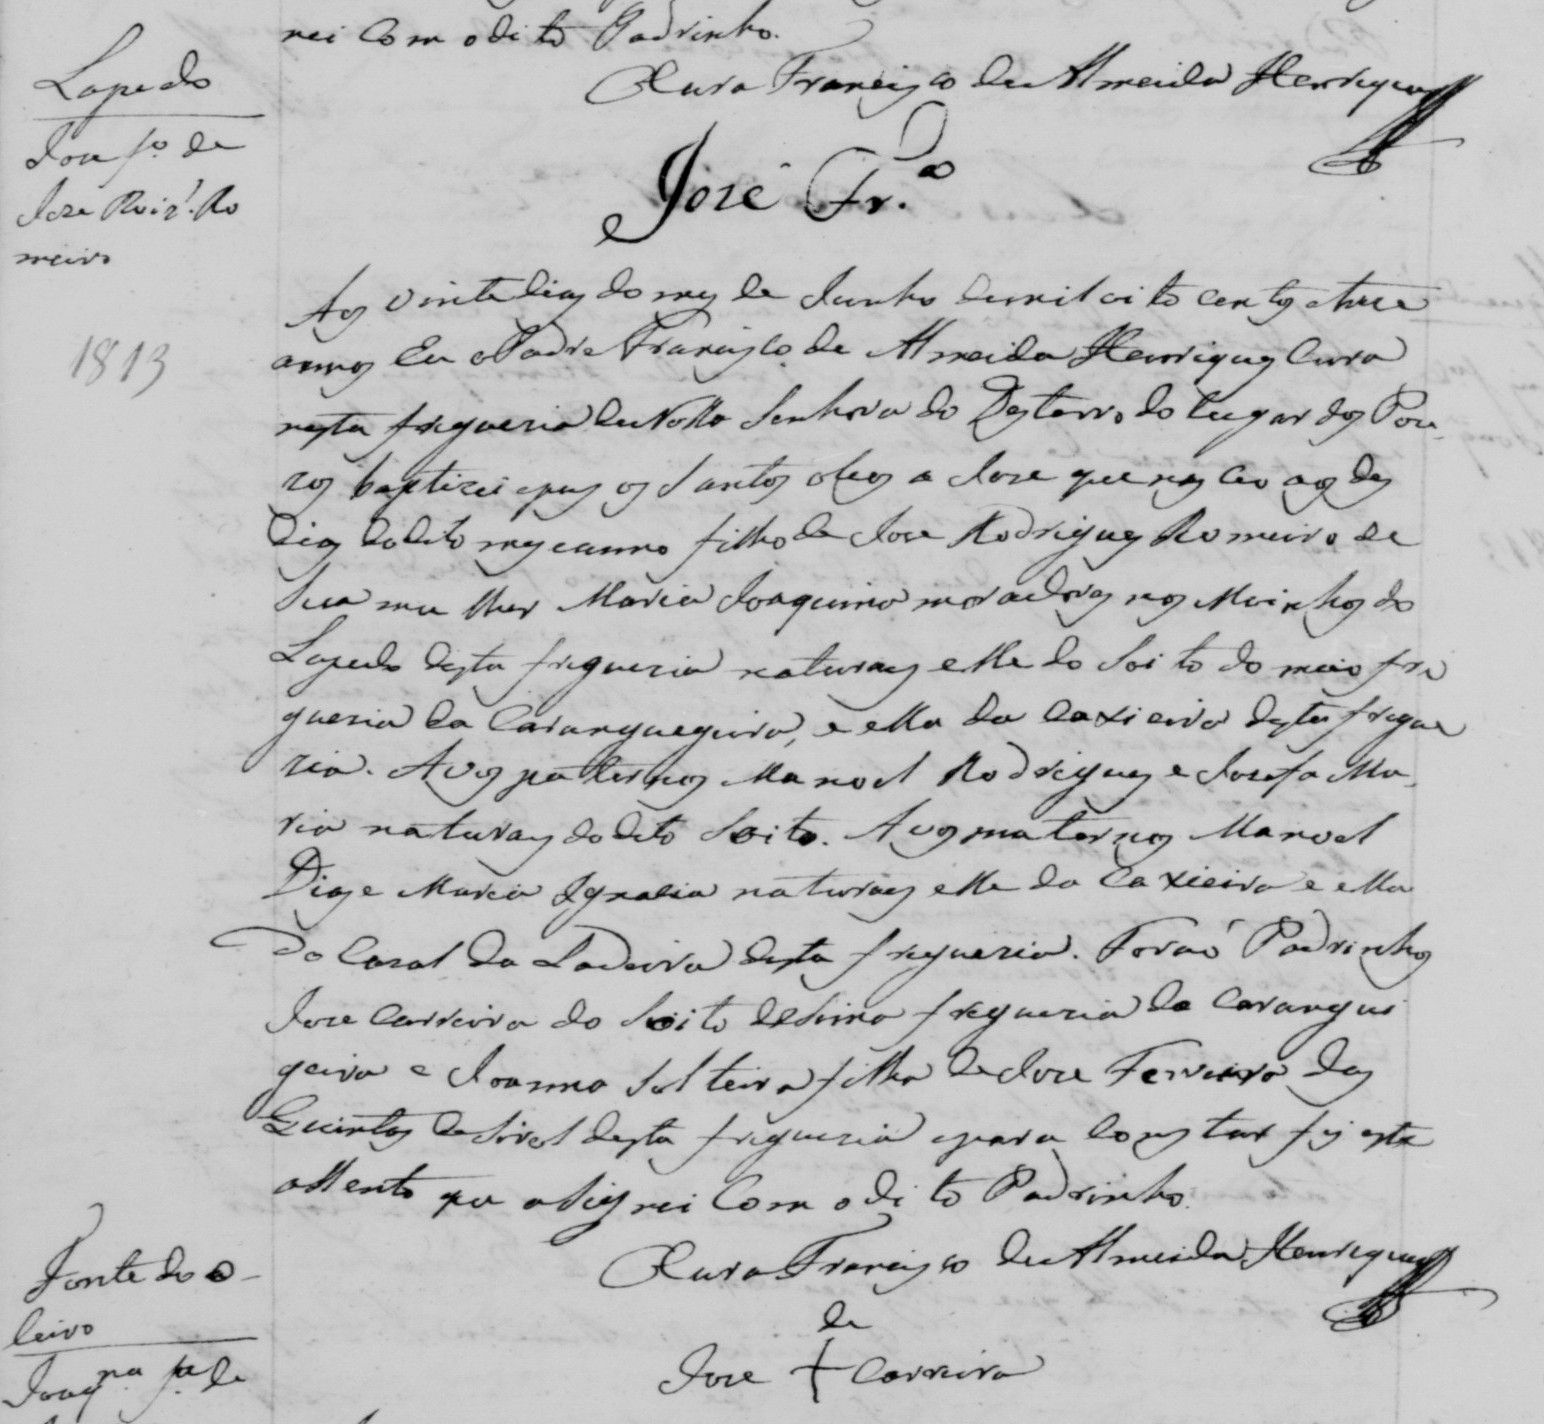 nei Com o dito Padrinho.
O Cura Francisco de Almeida Henriques
Lapedo
José Fr.co
Joze f.o de
Joze Roiz'. Ro
meiro
1813
Aos vinte dias do mes de Junho de mil oito centos e treze
annos Eu o Padre Francisco de Almeida Henriques Cura
nesta freguezia de Nossa Senhora do Desterro do lugar dos Pou-
zos baptizei e pus os Santos oleos a Joze que nasceo aos des
dias do dito mes e anno filho de Joze Rodrigues Romeiro e de
Sua mulher Maria Joaquina moradores nos Moinhos do
Lapedo desta freguezia naturaes elle do Soito do meio fre
guezia da Caranguegeira, e ella da Caxieira desta fregue
zia. Avos paternos Manoel Rodrigues e Josefa Ma-
ria naturaes do dito Soito. Avos maternos Manoel
Dias e Maria Ignacia naturaes elle da Caxieira e ella
do Casal da Ladeira desta freguezia. Foraõ Padrinhos
Joze Carreira do Soito de Sima freguezia da Carangue
geira e Joanna Solteira filha de Joze Ferreira das
Quintas de Sirol desta freguezia e para Constar fis este
assento que asignei Com o dito Padrinho.
O Cura Francisco de Almeida Henriques
de
Joze + Carreira
Fonte do O-
leiro
Joaq.na f.a de